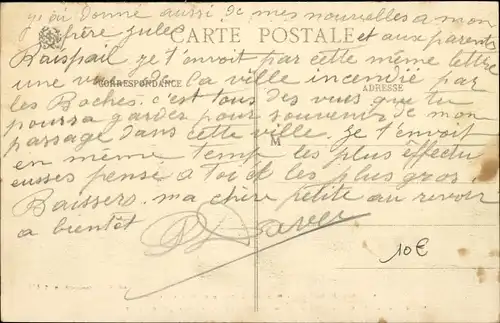 j'ai donné aussi de mes nouvelles a mon
frère jules et aux parents
CARTE POSTALE
Raispail je t'envoit par cette même lettre
une vue de la ville incendié par
CORRESPONDANCE
ADRESSE
les Boches. c'est tous des vues que tu
pourra gardes pour souvenir de mon
passage dans cette ville. je t'envoit
M
en même temp les plus éffectu
eusses pensé a toi et les plus gros
Baissers. ma chère petite au revoir
a bientôt
10€